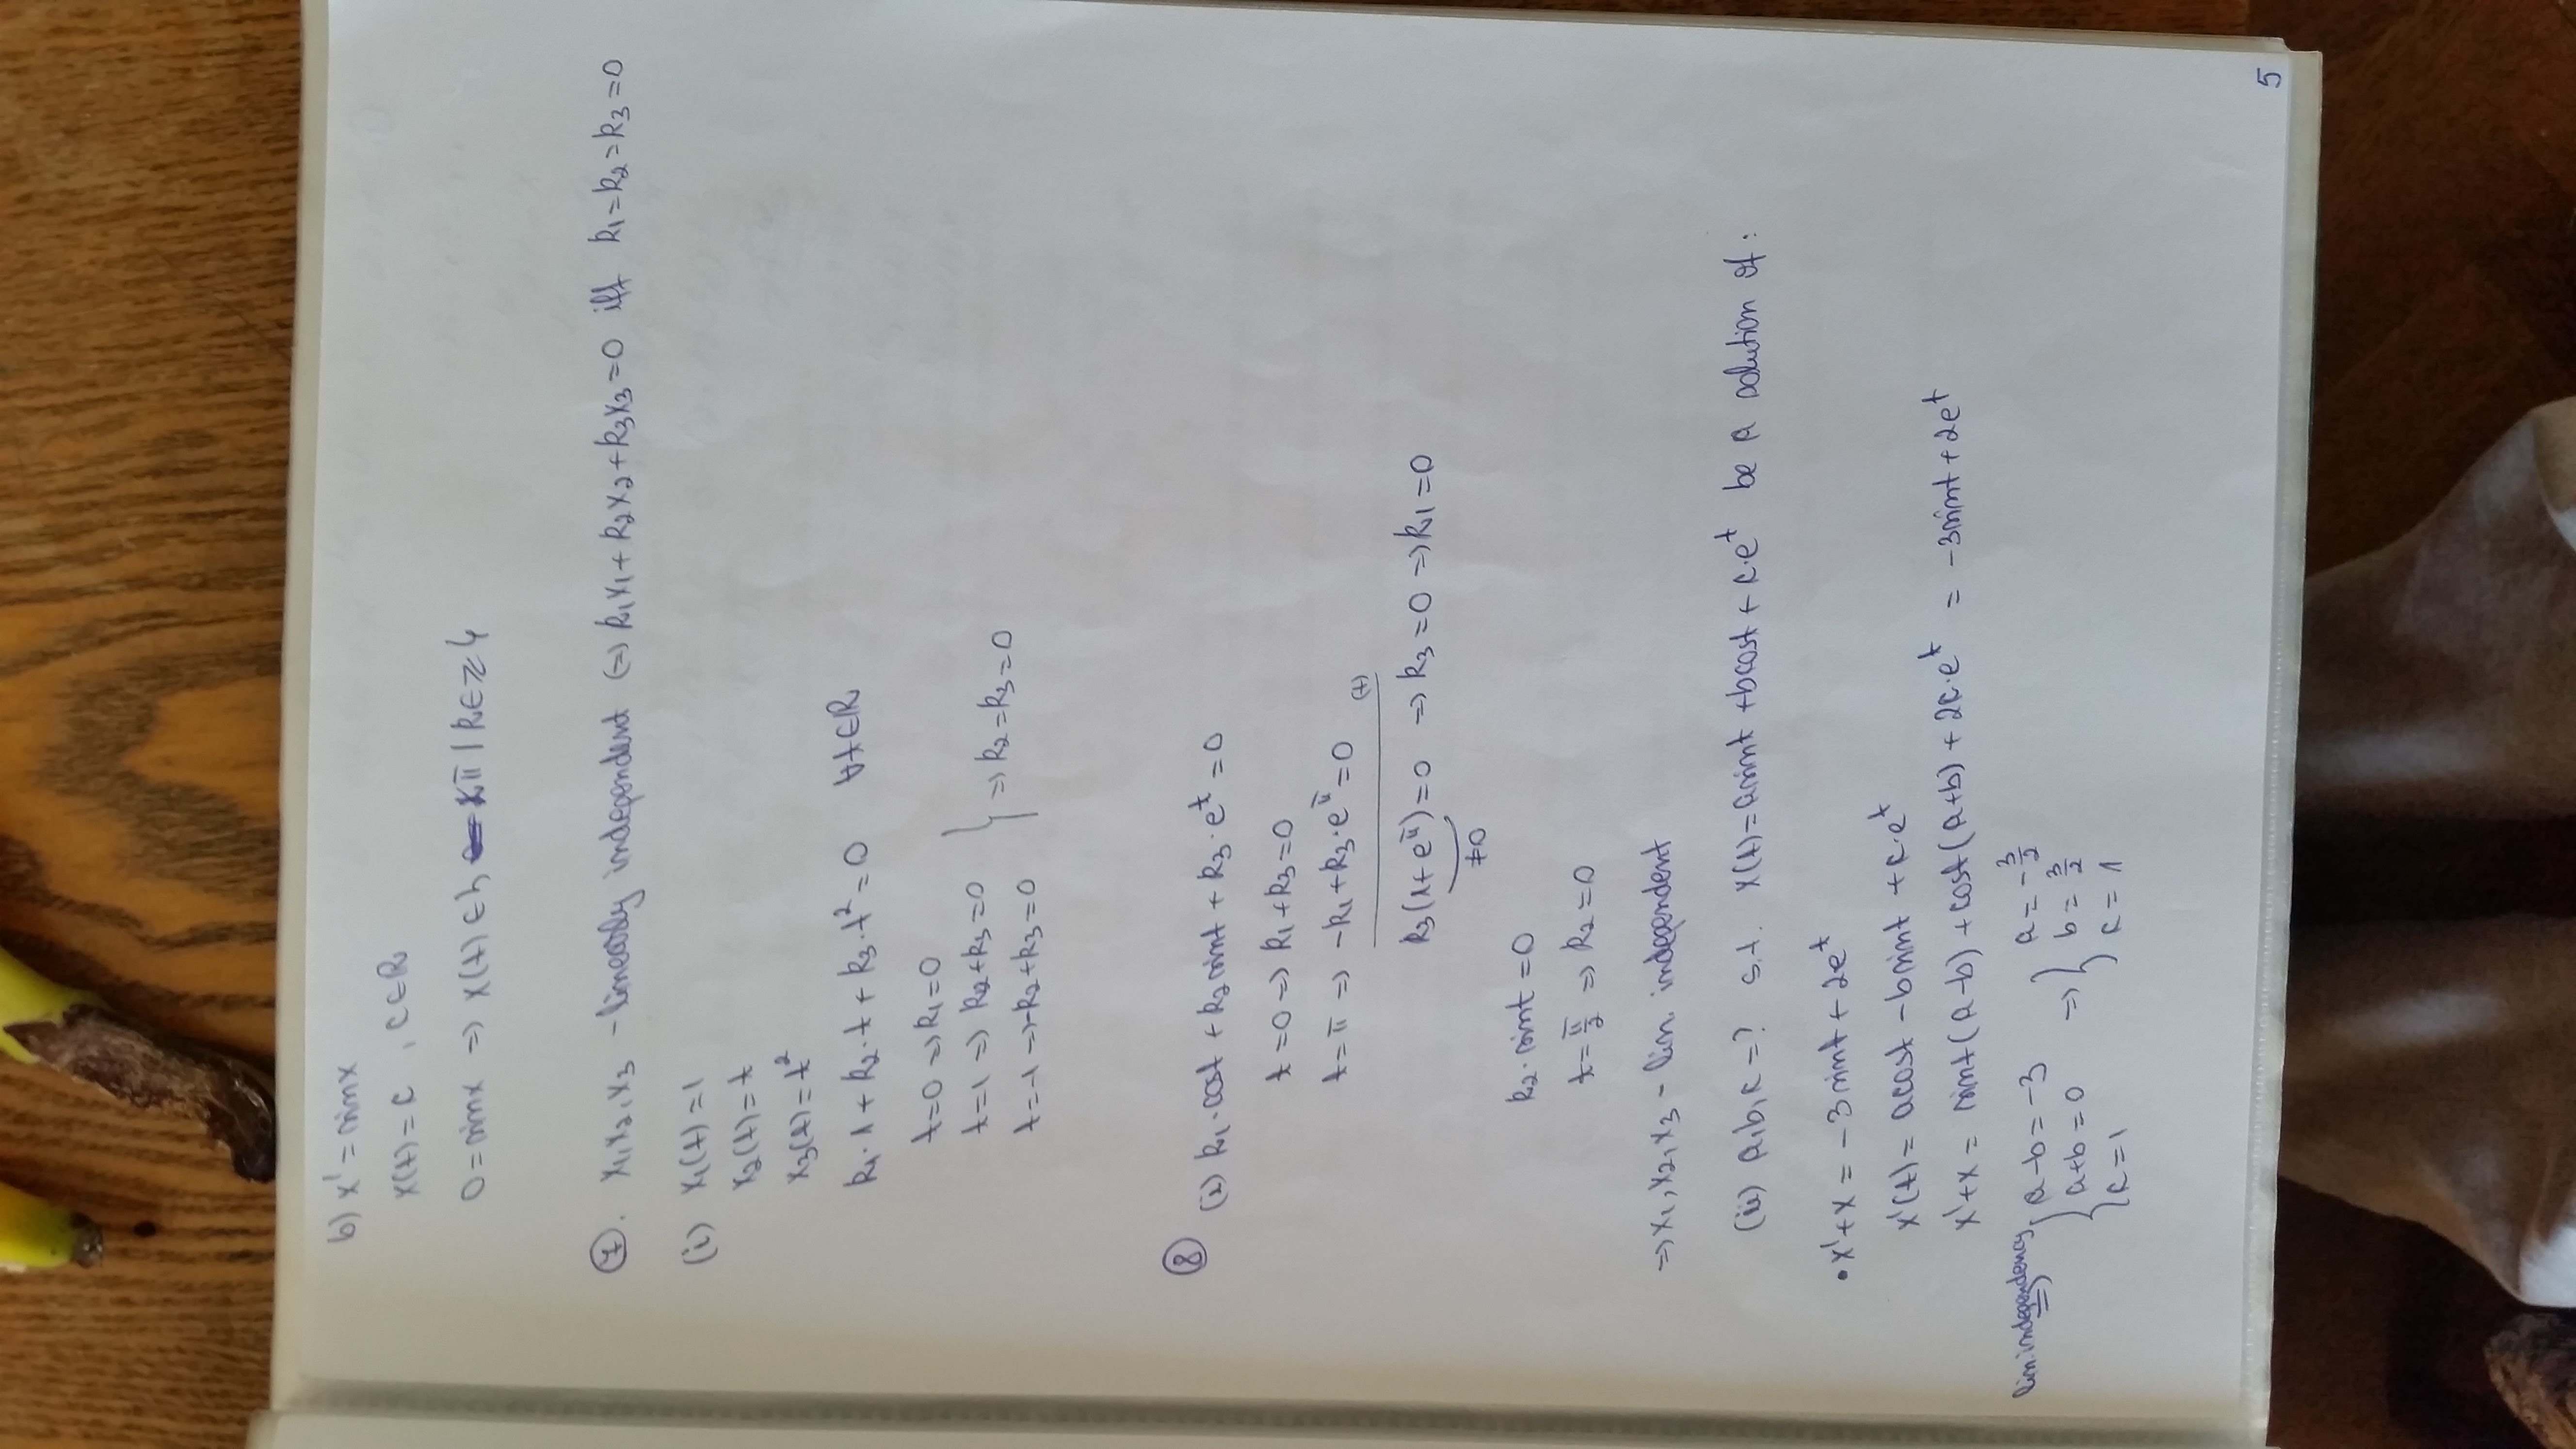 b) x' = sin x
x(t) = c , c ∈ R
0 = sin x => x(t) ∈ { kπ | k ∈ Z }
7. x1, x2, x3 - linearly independent (=) k1x1 + k2x2 + k3x3 = 0 iff k1 = k2 = k3 = 0
(i) x1(t) = 1
x2(t) = t
x3(t) = t²
k1·1 + k2·t + k3·t² = 0 ∀t∈R
t=0 => k1 = 0
t=1 => k2 + k3 = 0
t=-1 => -k2 + k3 = 0
} => k2 = k3 = 0
8
(i) k1·cost + k2 sint + k3·e^t = 0
t = 0 => k1 + k3 = 0
t = π => -k1 + k3·e^π = 0
(+)
k3(1 + e^π) = 0 => k3 = 0 => k1 = 0
≠0
k2·sint = 0
t = π/2 => k2 = 0
=> x1, x2, x3 - lin. independent
(ii) a, b, c = ? s.t. x(t) = a sint + b cost + c·e^t be a solution of :
• x' + x = -3 sint + 2e^t
x'(t) = a cost - b sint + c·e^t
x' + x = sint (a-b) + cost (a+b) + 2c·e^t = -3 sint + 2e^t
lin. independency => { a - b = -3 => { a = -3/2
a + b = 0 b = 3/2
c = 1 c = 1
5